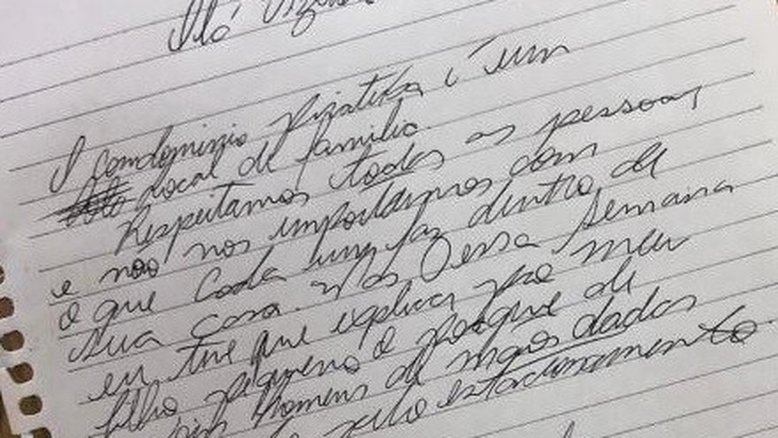 Alô
O condominio Piratika é um
local de familia.
Respeitamos todas as pessoas
e não nos importamos com
o que cada um faz dentro de
sua casa. Mas essa semana
eu tive que explicar pro meu
filho pequeno o porque de
dois homens de mãos dadas
pelo estacionamento.